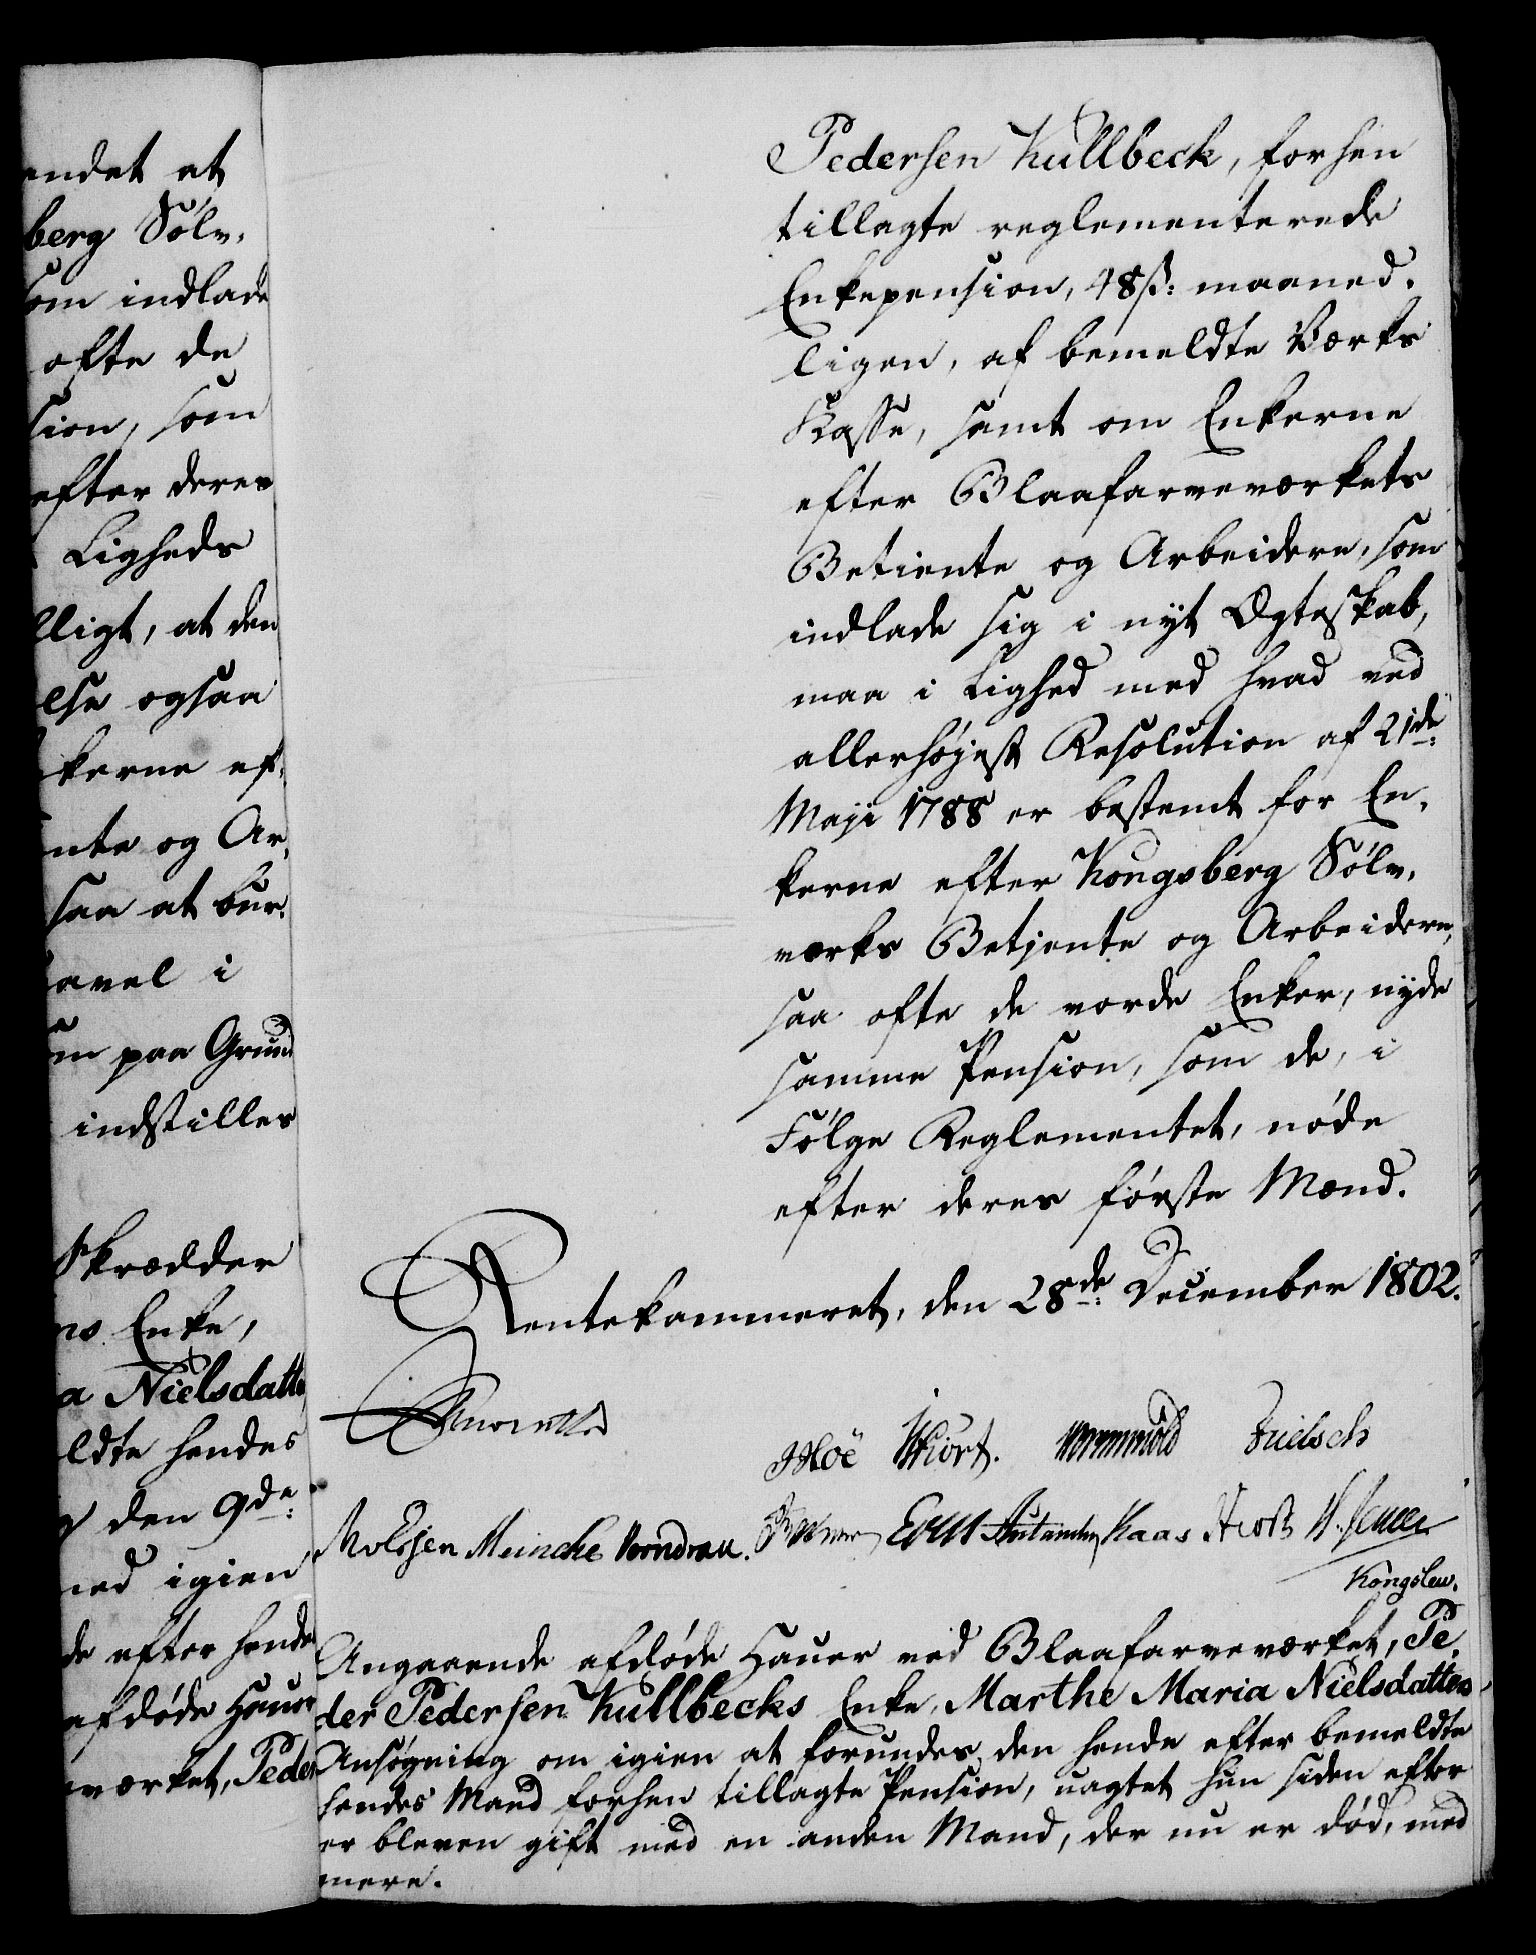 endet at
berg Sølv-
som indlade
ofte de
sion, som
efter deres
Ligheds
lligt, at den
else ogsaa
kerne ef-
nte og Ar-
saa at bur-
avel i
paa Grund
indstilles
Skrædder
Enke,
a Nielsdatter
ldte hendes
den 9de
ned igien
de efter hende
afdøde Hauer
værket, Peder
Pedersen Kullbeck, forhen
tillagte reglementerede
Enkepension, 48 ß: maaned-
ligen, af bemeldte Værks
Kasse, samt om Enkerne
efter Blaafarveværkets
Betiente og Arbeidere, som
indlade sig i nyt Ægteskab,
maa i Lighed med hvad ved
allerhøjest Resolution af 21de
Maji 1788 er bestemt for En-
kerne efter Kongsberg Sølv-
værks Betjente og Arbeidere,
saa ofte de vorde Enker, nyde
samme Pension, som de, i
Følge Reglementet, nøde
efter deres første Mænd.
Rentekammeret, den 28de December 1802.
Hiort. Wormskiold
Meincke Kaas
Kongslew.
Angaaende afdøde Hauer ved Blaafarveværket, Pe-
der Pedersen Kullbecks Enke, Marthe Maria Nielsdatters
Ansøgning om igien at forundes den hende efter bemeldte
hendes Mand forhen tillagte Pension, uagtet hun siden efter
er bleven gift med en anden Mand, der nu er død, med
mere.